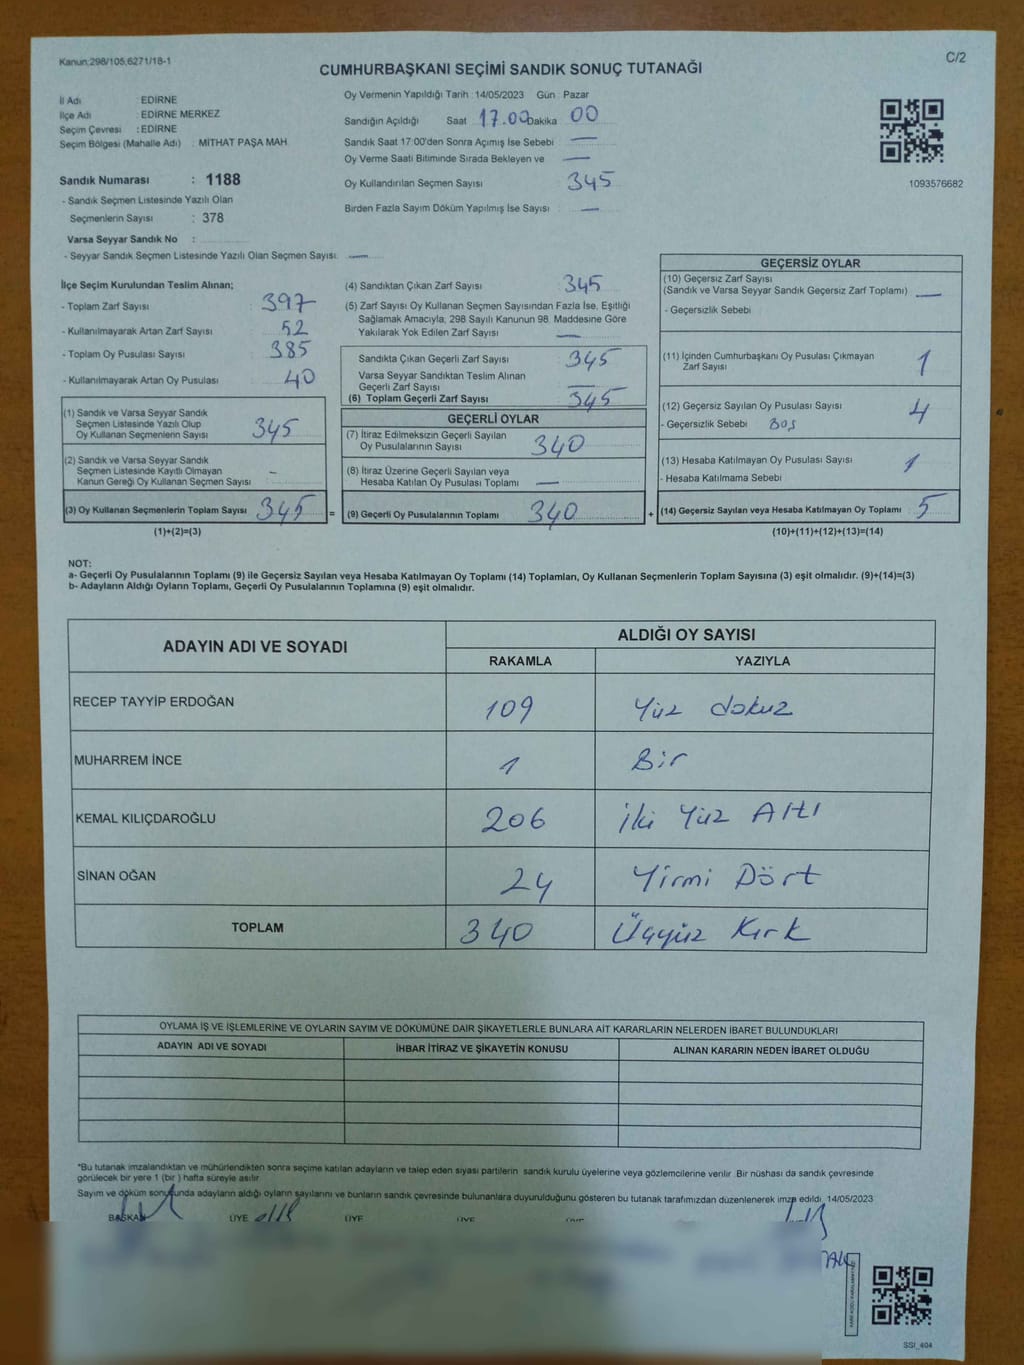 Kanun:298/105,6271/18-1
C/2
CUMHURBAŞKANI SEÇİMİ SANDIK SONUÇ TUTANAĞI
İl Adı EDİRNE
İlçe Adı : EDİRNE MERKEZ
Seçim Çevresi : EDİRNE
Seçim Bölgesi (Mahalle Adı) : MİTHAT PAŞA MAH.
Sandık Numarası : 1188
- Sandık Seçmen Listesinde Yazılı Olan
Seçmenlerin Sayısı : 378
Varsa Seyyar Sandık No :
- Seyyar Sandık Seçmen Listesinde Yazılı Olan Seçmen Sayısı: —
Oy Vermenin Yapıldığı Tarih : 14/05/2023 Gün : Pazar
Sandığın Açıldığı Saat 17.00 Dakika 00
Sandık Saat 17:00'den Sonra Açımış İse Sebebi —
Oy Verme Saati Bitiminde Sırada Bekleyen ve —
Oy Kullandırılan Seçmen Sayısı 345
Birden Fazla Sayım Döküm Yapılmış İse Sayısı : —
1093576682
İlçe Seçim Kurulundan Teslim Alınan;
- Toplam Zarf Sayısı 397
- Kullanılmayarak Artan Zarf Sayısı 52
- Toplam Oy Pusulası Sayısı 385
- Kullanılmayarak Artan Oy Pusulası 40
(1) Sandık ve Varsa Seyyar Sandık
Seçmen Listesinde Yazılı Olup
Oy Kullanan Seçmenlerin Sayısı 345
(2) Sandık ve Varsa Seyyar Sandık
Seçmen Listesinde Kayıtlı Olmayan
Kanun Gereği Oy Kullanan Seçmen Sayısı –
(3) Oy Kullanan Seçmenlerin Toplam Sayısı 345
(1)+(2)=(3)
=
(4) Sandıktan Çıkan Zarf Sayısı 345
(5) Zarf Sayısı Oy Kullanan Seçmen Sayısından Fazla İse, Eşitliği
Sağlamak Amacıyla, 298 Sayılı Kanunun 98. Maddesine Göre
Yakılarak Yok Edilen Zarf Sayısı —
Sandıkta Çıkan Geçerli Zarf Sayısı 345
Varsa Seyyar Sandıktan Teslim Alınan
Geçerli Zarf Sayısı —
(6) Toplam Geçerli Zarf Sayısı 345
GEÇERLİ OYLAR
(7) İtiraz Edilmeksizin Geçerli Sayılan
Oy Pusulalarının Sayısı 340
(8) İtiraz Üzerine Geçerli Sayılan veya
Hesaba Katılan Oy Pusulası Toplamı —
(9) Geçerli Oy Pusulalarının Toplamı 340
+
GEÇERSİZ OYLAR
(10) Geçersiz Zarf Sayısı
(Sandık ve Varsa Seyyar Sandık Geçersiz Zarf Toplamı) —
- Geçersizlik Sebebi
(11) İçinden Cumhurbaşkanı Oy Pusulası Çıkmayan
Zarf Sayısı 1
(12) Geçersiz Sayılan Oy Pusulası Sayısı 4
- Geçersizlik Sebebi Boş
(13) Hesaba Katılmayan Oy Pusulası Sayısı 1
- Hesaba Katılmama Sebebi
(14) Geçersiz Sayılan veya Hesaba Katılmayan Oy Toplamı 5
(10)+(11)+(12)+(13)=(14)
NOT:
a- Geçerli Oy Pusulalarının Toplamı (9) ile Geçersiz Sayılan veya Hesaba Katılmayan Oy Toplamı (14) Toplamları, Oy Kullanan Seçmenlerin Toplam Sayısına (3) eşit olmalıdır. (9)+(14)=(3)
b- Adayların Aldığı Oyların Toplamı, Geçerli Oy Pusulalarının Toplamına (9) eşit olmalıdır.
ADAYIN ADI VE SOYADI
ALDIĞI OY SAYISI
RAKAMLA YAZIYLA
RECEP TAYYİP ERDOĞAN 109 Yüz dokuz
MUHARREM İNCE 1 Bir
KEMAL KILIÇDAROĞLU 206 İki Yüz Altı
SİNAN OĞAN 24 Yirmi Dört
TOPLAM 340 Üçyüz Kırk
OYLAMA İŞ VE İŞLEMLERİNE VE OYLARIN SAYIM VE DÖKÜMÜNE DAİR ŞİKAYETLERLE BUNLARA AİT KARARLARIN NELERDEN İBARET BULUNDUKLARI
ADAYIN ADI VE SOYADI İHBAR İTİRAZ VE ŞİKAYETİN KONUSU ALINAN KARARIN NEDEN İBARET OLDUĞU
*Bu tutanak imzalandıktan ve mühürlendikten sonra seçime katılan adayların ve talep eden siyasi partilerin sandık kurulu üyelerine veya gözlemcilerine verilir. Bir nüshası da sandık çevresinde
görülecek bir yere 1 (bir ) hafta süreyle asılır.
Sayım ve döküm sonucunda adayların aldığı oyların sayılarını ve bunların sandık çevresinde bulunanlara duyurulduğunu gösteren bu tutanak tarafımızdan düzenlenerek imza edildi. 14/05/2023
BAŞKAN ÜYE ÜYE ÜYE
SSI_404